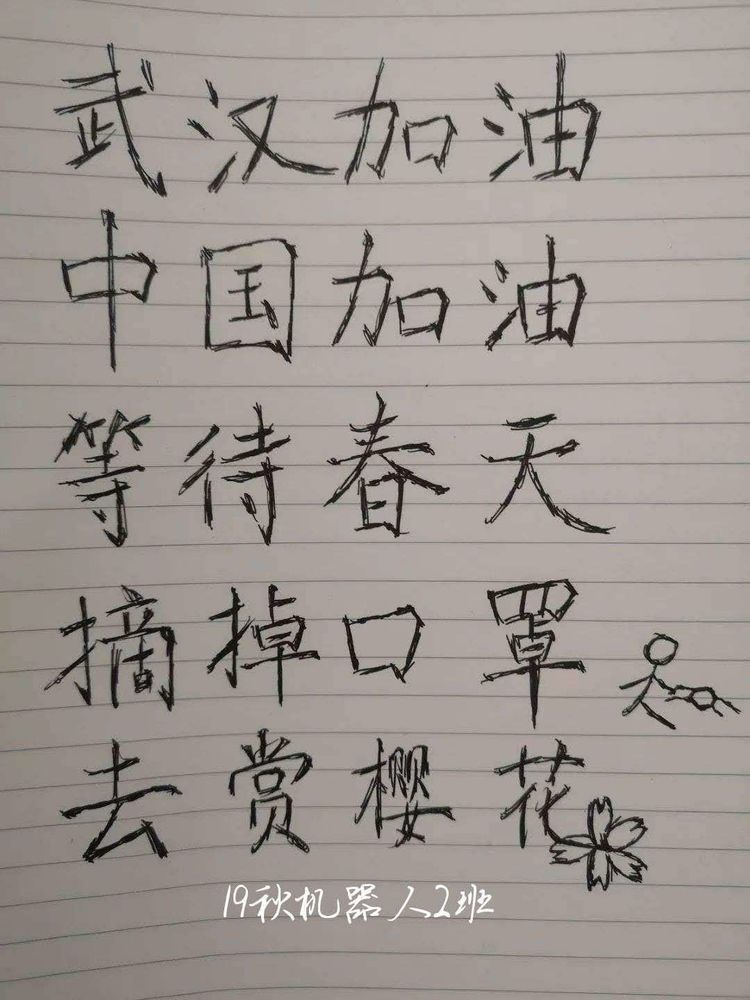 武汉加油
中国加油
等待春天
摘掉口罩
去赏樱花
19秋机器人2班